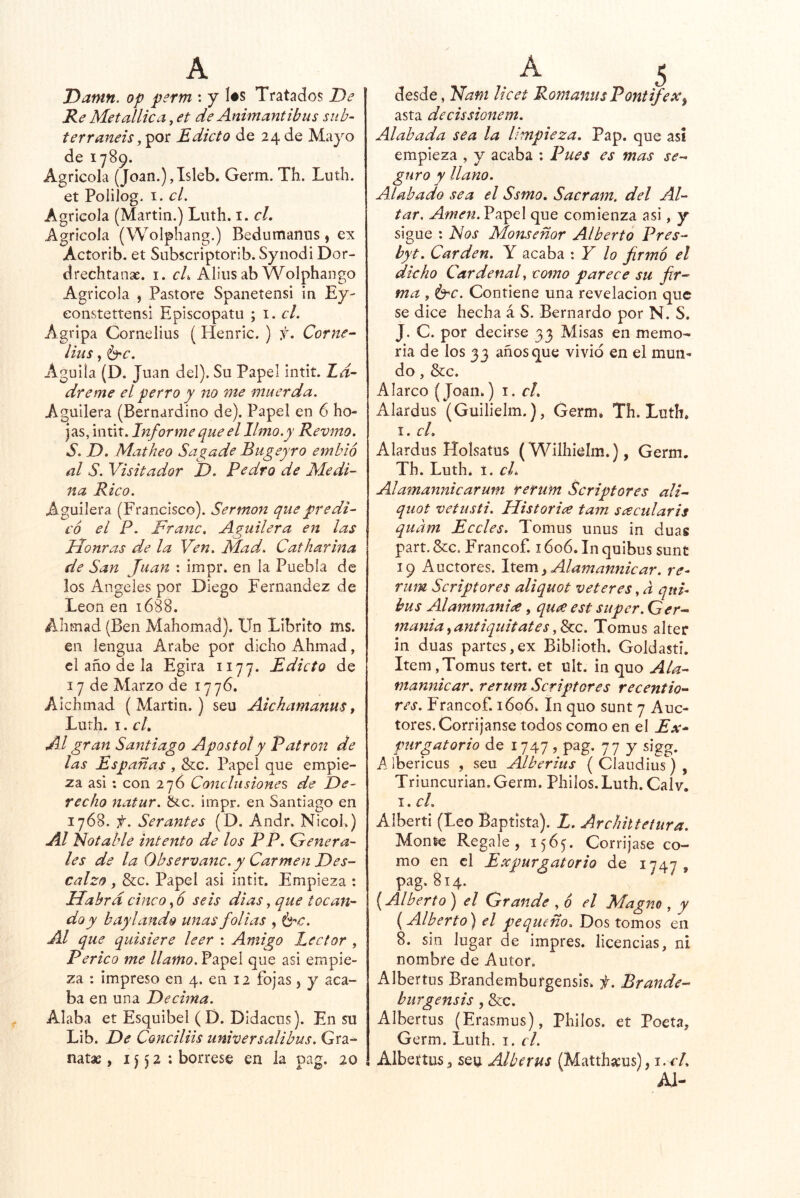 A
Damn. op perm : y los Tratados De
Re Metallica, et de Animantibus sub-
terraneis, por Edicto de 24 de Mayo
de 1789.
Agricola (Joan.), Isleb. Germ. Th. Luth.
et Polilog. 1. cl.
Agricola (Martin.) Luth. 1. cl.
Agricola (Wolphang.) Bedumanus, ex
Actorib. et Subscriptorib. Synodi Dor-
drechtanæ. 1. cl. Alius ab Wolphango
Agricola , Pastore Spanetensi in Ey-
constettensi Episcopatu ; 1. cl.
Agripa Cornelius ( Henric. ) ℣. Corne-
lius, &c.
Aguila (D. Juan del). Su Papel intit. Lá-
dreme el perro y no me muerda.
Aguilera (Bernardino de). Papel en 6 ho-
jas, intit. Informe que el Ilmo. y Revmo.
S. D. Matheo Sagade Bugeyro embió
al S. Visitador D. Pedro de Medi-
na Rico.
Aguilera (Francisco). Sermon que predi-
có el P. Franc. Aguilera en las
Honras de la Ven. Mad. Catharina
de San Juan : impr. en la Puebla de
los Angeles por Diego Fernandez de
Leon en 1688.
Ahmad (Ben Mahomad). Un Librito ms.
en lengua Arabe por dicho Ahmad,
el año de la Egira 1177. Edicto de
17 de Marzo de 1776.
Aichmad ( Martin. ) seu Aichamanus,
Luth. 1. cl.
Al gran Santiago Apostol y Patron de
las Españas , &c. Papel que empie-
za asi : con 276 Conclusiones de De-
recho natur. &c. impr. en Santiago en
1768. ℣. Serantes (D. Andr. Nicol.)
Al Notable intento de los PP. Genera-
les de la Observanc. y Carmen Des-
calzo, &c. Papel asi intit. Empieza :
Habrá cinco, ó seis dias, que tocan-
do y baylando unas folias , &c.
Al que quisiere leer : Amigo Lector ,
Perico me llamo. Papel que asi empie-
za : impreso en 4. en 12 fojas, y aca-
ba en una Decima.
Alaba et Esquibel ( D. Didacus). En su
Lib. De Conciliis universalibus. Gra-
natæ, 1552 : borrese en la pag. 20
A 5
desde, Nam licet Romanus Pontifex,
asta decissionem.
Alabada sea la limpieza. Pap. que asi
empieza , y acaba : Pues es mas se-
guro y llano.
Alabado sea el Ssmo. Sacram. del Al-
tar. Amen. Papel que comienza asi, y
sigue : Nos Monseñor Alberto Pres-
byt. Carden. Y acaba : Y lo firmó el
dicho Cardenal, como parece su fir-
ma , &c. Contiene una revelacion que
se dice hecha á S. Bernardo por N. S.
J. C. por decirse 33 Misas en memo-
ria de los 33 años que vivió en el mun-
do, &c.
Alarco (Joan.) 1. cl.
Alardus (Guilielm.), Germ. Th. Luth.
1. cl.
Alardus Holsatus (Wilhielm.), Germ.
Th. Luth. 1. cl.
Alamannicarum rerum Scriptores ali-
quot vetusti. Historiæ tam sæcularis
quàm Eccles. Tomus unus in duas
part. &c. Francof. 1606. In quibus sunt
19 Auctores. Item, Alamannicar. re-
rum Scriptores aliquot veteres, à qui-
bus Alammaniæ, quæ est super. Ger-
mania, antiquitates, &c. Tomus alter
in duas partes, ex Biblioth. Goldasti.
Item, Tomus tert. et ult. in quo Ala-
mannicar. rerum Scriptores recentio-
res. Francof. 1606. In quo sunt 7 Auc-
tores. Corrijanse todos como en el Ex-
purgatorio de 1747, pag. 77 y sigg.
Albericus , seu Alberius ( Claudius ) ,
Triuncurian. Germ. Philos. Luth. Calv.
1. cl.
Alberti (Leo Baptista). L. Archittetura.
Monte Regale, 1565. Corrijase co-
mo en el Expurgatorio de 1747,
pag. 814.
(Alberto) el Grande, ó el Magno, y
(Alberto) el pequeño. Dos tomos en
8. sin lugar de impres. licencias, ni
nombre de Autor.
Albertus Brandemburgensis. ℣. Brande-
burgensis , &c.
Albertus (Erasmus), Philos. et Poeta,
Germ. Luth. 1. cl.
Albertus, seu Alberus (Matthæus), 1. cl.
Al-